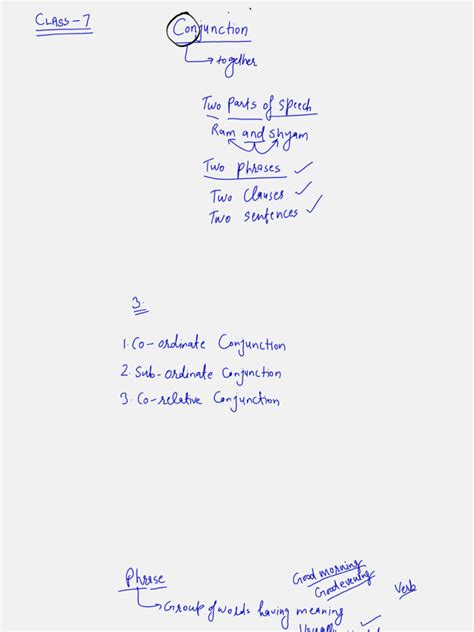 CLASS-7
Conjunction
together
Two Parts of Speech
Ram and Shyam
Two Phrases
Two Clauses
Two sentences
3.
1. Co-ordinate Conjunction
2. Sub-ordinate Conjunction
3. Co-relative Conjunction
Good morning
Good evening
Verb
Phrase
Group of words having meaning
Usually